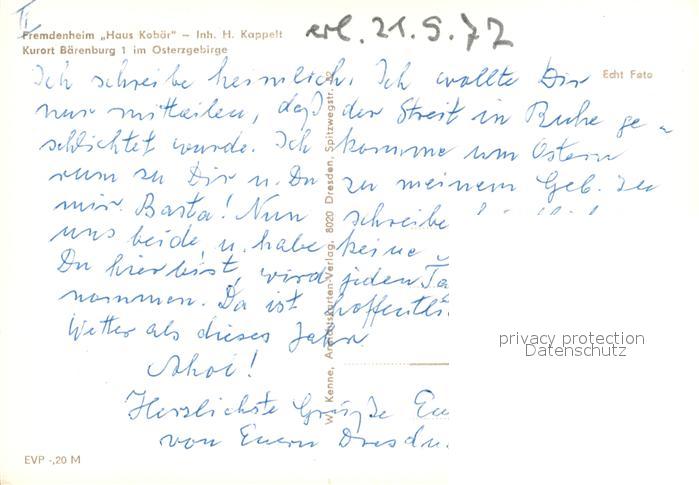 II
Fremdenheim „Haus Kobär" – Inh. H. Kappelt
Kurort Bärenburg 1 im Osterzgebirge
erl. 21.5.72
Echt Foto
Ich schreibe heimlich. Ich wollte Dir
nur mitteilen, daß der Streit in Ruhe ge-
schlichtet wurde. Ich komme um Ostern
rum zu Dir u. Du zu meinem Geb. zu
mir. Basta! Nun schreibe
uns beide u. habe keine
Du hier bist, wird jeden Ta
nommen. Da ist hoffentli
Wetter als dieses Jahr.
Ahoi!
Herzlichste Grüße Eu
von Euern Dresdn.
W. Kenne, Ansichtskarten-Verlag, 8020 Dresden, Spitzwegstr.
privacy protection
Datenschutz
EVP -,20 M